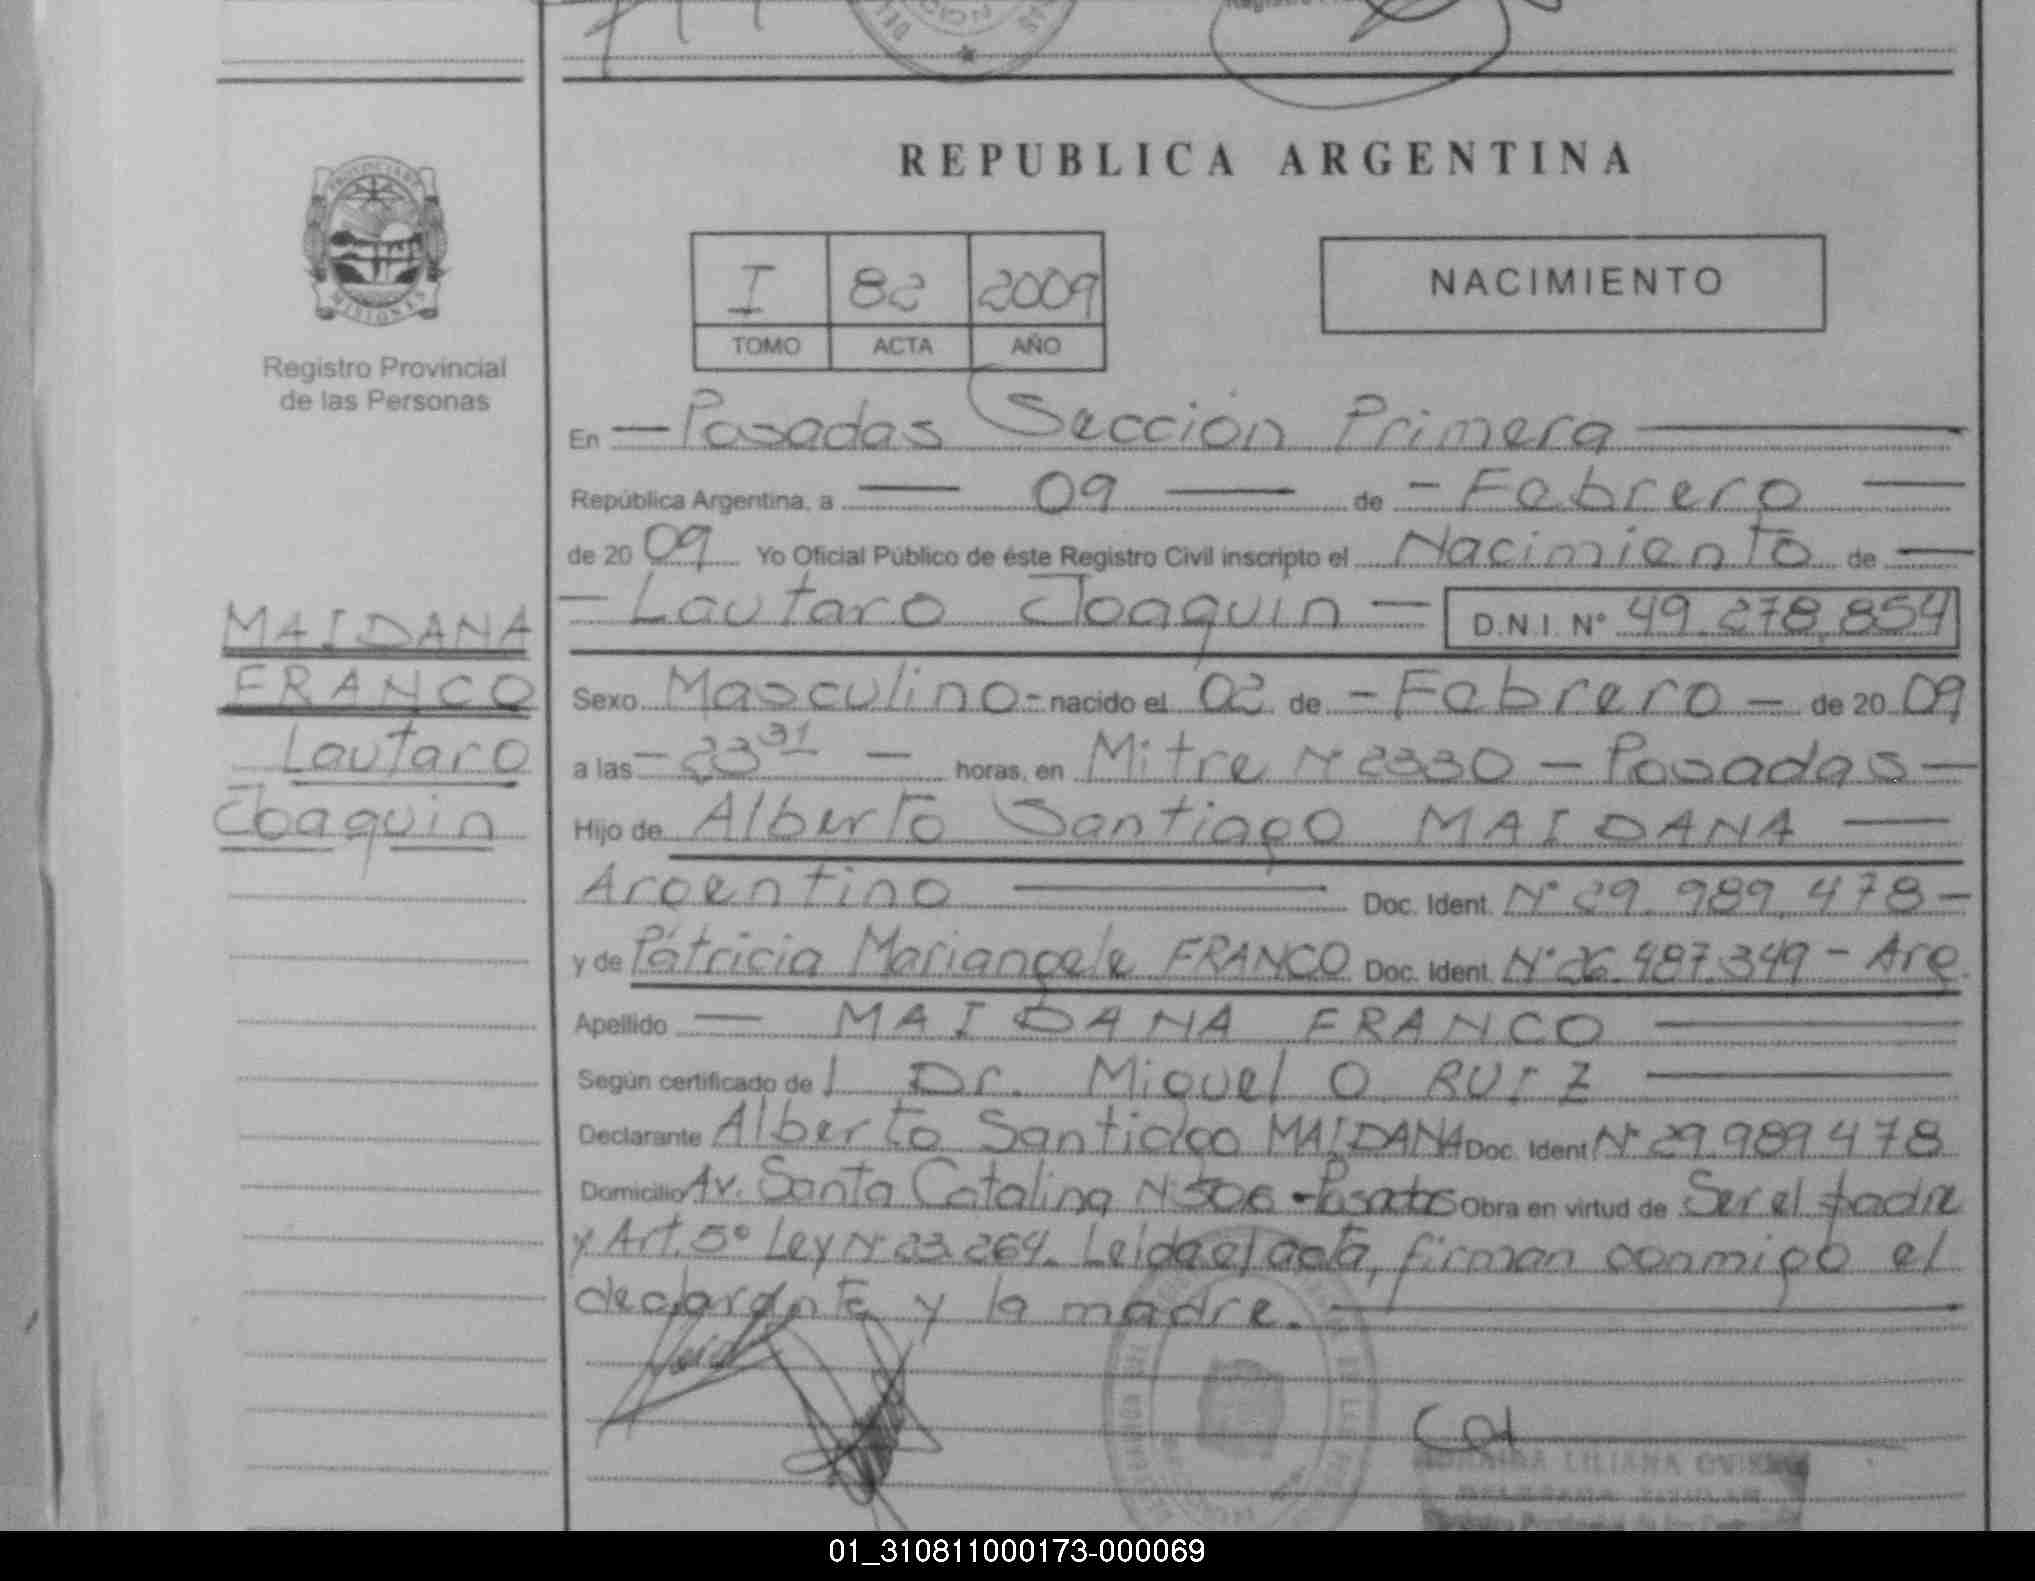 REPUBLICA ARGENTINA
PROVINCIA DE
MISIONES
Registro Provincial
de las Personas
I 82 2009
TOMO ACTA AÑO
NACIMIENTO
En — Posadas Sección Primera —
República Argentina, a — 09 — de - Febrero —
de 20 09 Yo Oficial Público de éste Registro Civil inscripto el Nacimiento de —
- Lautaro Joaquin — D.N.I. Nº 49.278.854
MAIDANA
FRANCO
Lautaro
Joaquin
Sexo Masculino - nacido el 02 de - Febrero - de 20 09
a las - 23 31 - horas, en Mitre Nº 2330 - Posadas -
Hijo de Alberto Santiago MAIDANA —
Argentino — Doc. Ident. Nº 29.989.478 -
y de Patricia Mariangele FRANCO Doc. Ident. Nº 26.487.349 - Arg.
Apellido — MAIDANA FRANCO —
Según certificado de l Dr. Miguel O. RUIZ —
Declarante Alberto Santiago MAIDANA Doc. Ident Nº 29.989.478
Domicilio Av. Santa Catalina Nº 506 - Posadas Obra en virtud de Ser el padre
y Art. 5º Ley Nº 23.264. Leida el acta, firman conmigo el
declarante y la madre. —
LILIANA
01_310811000173-000069